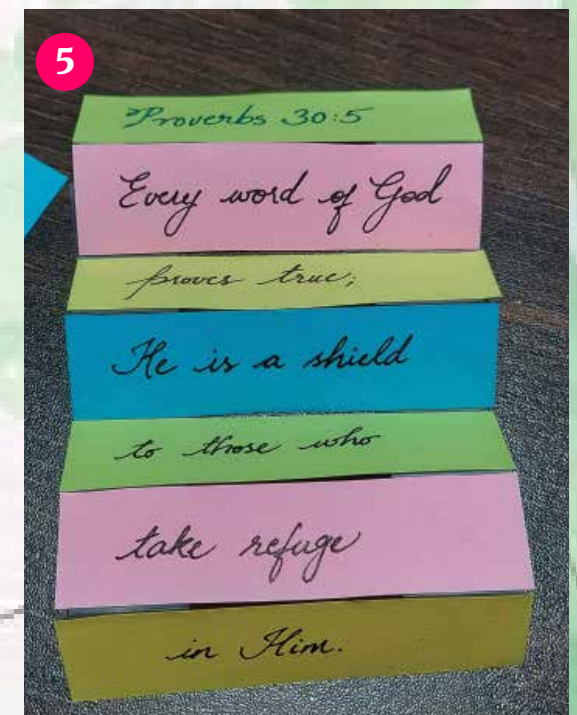 5
Proverbs 30:5
Every word of God
proves true;
He is a shield
to those who
take refuge
in Him.